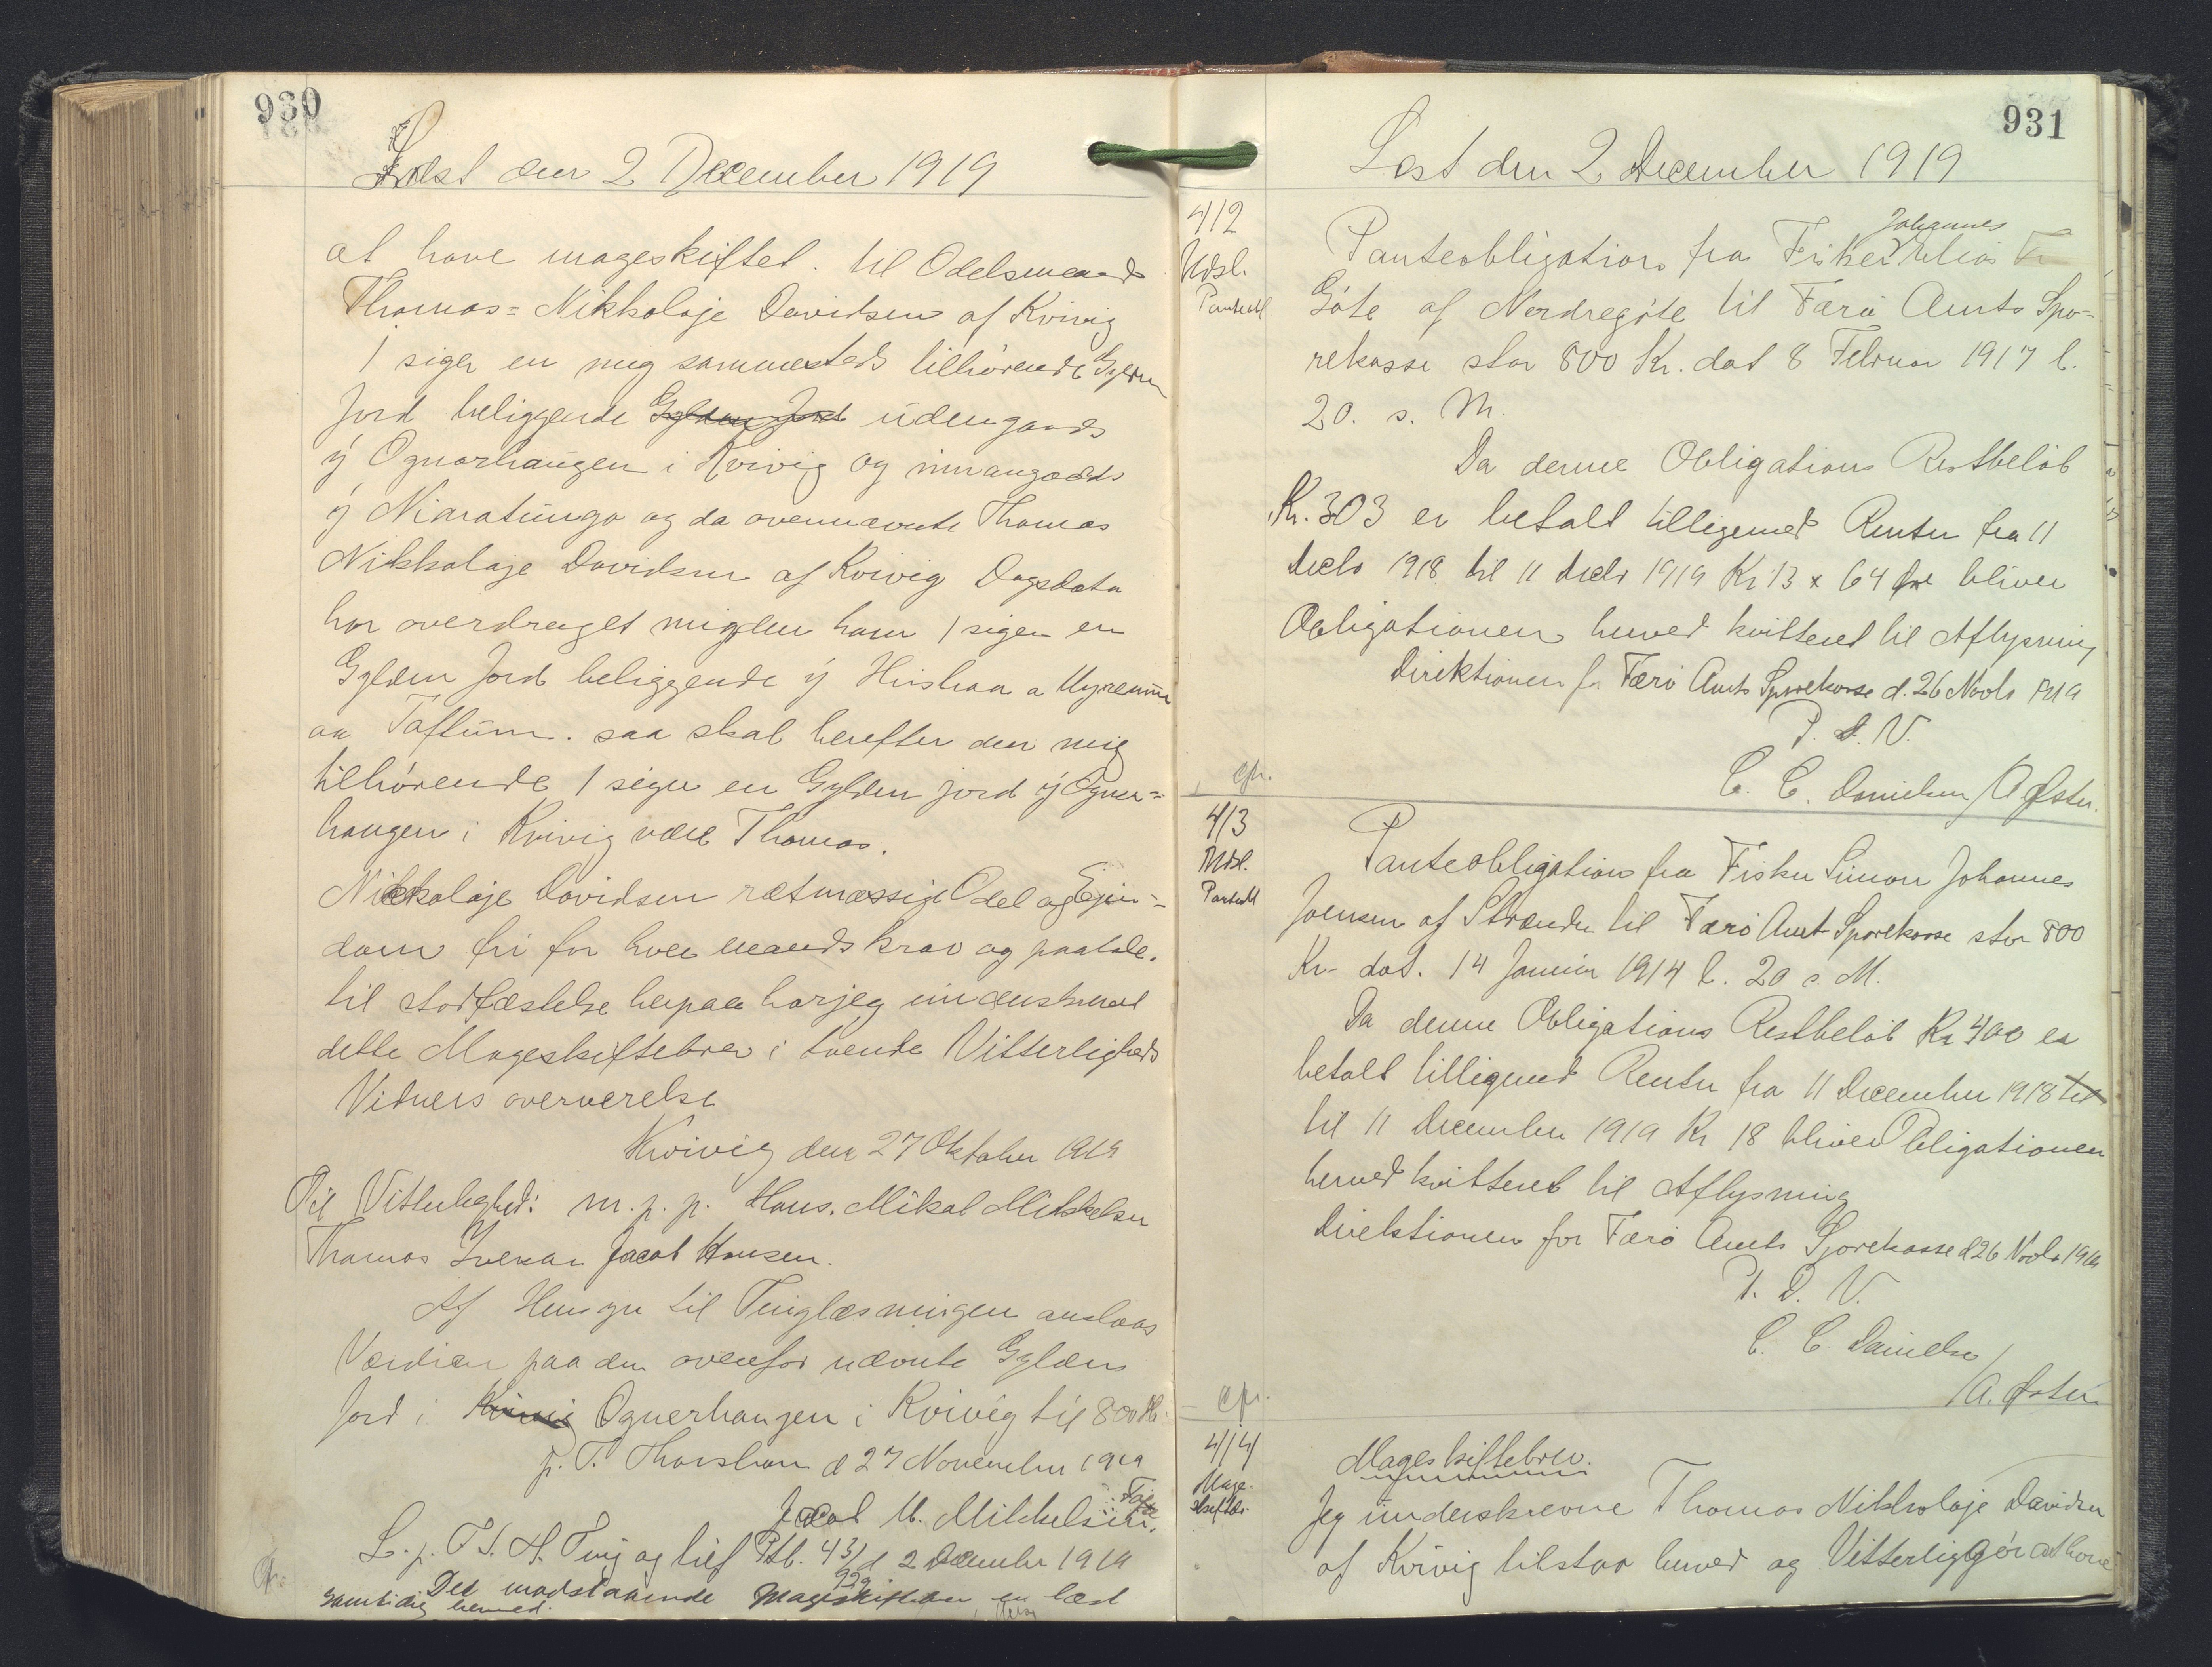 930
Læst den 2 December 1919
at have mageskiftet. til Odelsmand
Thomas=Nikkolaje Davidsen af Kvivig
1 siger en mig sammesteds tilhørende Gylden
Jord beliggende Gylden Jord udengaards
ÿ Ognarhaugen i Kvivig og innangaards
ÿ Niaratunga og da ovennævnte Thomas
Nikkolaje Davidsen af Kvivig Dagsdato
har overdraget mig den ham 1 siger en
Gylden Jord beliggende ÿ
aa Toftum. saa skal herefter den mig
tilhørende 1 siger en Gylden jord ÿ Ogner=
haugen i Kvivig være Thomas.
Nickolaje Davidsen rætmæssige Odel og Ejen=
dom fri for hver mands krav og paatale.
til stadfæstelse herpaa har jeg underskrevet
dette Mageskiftebrev i tvende Vitterligheds
Vidners overværelse
Kvivig den 27 Oktober 1919
Til Vitterlighed: m. p. p. Hans. Mikal Mikkelsen
Thomas Jacob Hansen.
Af Hensyn til Tinglæsningen anslaas
Værdien paa den ovenfor nævnte Gylden
Jord i Kvivig Ognerhaugen i Kvivig til 800 Kr.
p. T. Thorshavn d 27 November 1919
Jacob M. Mikkelsen.
L. p. T. S. H. Ting og tilf Ptb. 43/929 d 2 December 1919
Det modstaaende Mageskiftebrev er læst
samtidig hermed.
931
Læst den 2 December 1919
412
Udsl.
Panteobl
Johannes
Panteobligation fra Fisker Elias
Göte af Nordregöte til Færö Amts Spa=
rekasse stor 800 Kr. dat 8 Februar 1917 l.
20. s. M.
Da denne Obligations Restbelöb
Kr. 303 er betalt tilligemed Renter fra 11
Decbr 1918 til 11 Decbr 1919 Kr 13 x 64 Øre bliver
Obligationen herved kvitteret til Aflysning
Direktionen for Færö Amts Sparekasse d. 26 Novbr 1919
P. D. V.
C. C. Danielsen /A Öster.
cfr.
413
Udsl.
Panteobl
Panteobligation fra Fisker Simon Johannes
Joensen af Strænder til Færö Amts Sparekasse stor 800
Kr. dat. 14 Januar 1914 l. 20 s. M.
Da denne Obligations Restbelöb Kr 400 er
betalt tilligemed Renter fra 11 December 1918 til
til 11 December 1919 Kr 18 bliver Obligationen
herved kvitteret til Aflysning
Direktionen for Færö Amts Sparekasse d 26 Novbr 1919
P. D. V.
C. C. Danielsen
/A. Öster
cfr.
414
Mage-
skiftebr.
Mageskiftebrev.
Jeg underskrevne Thomas Nikkolaje Davidsen
af Kvivig tilstaar herved og Vitterliggör at have